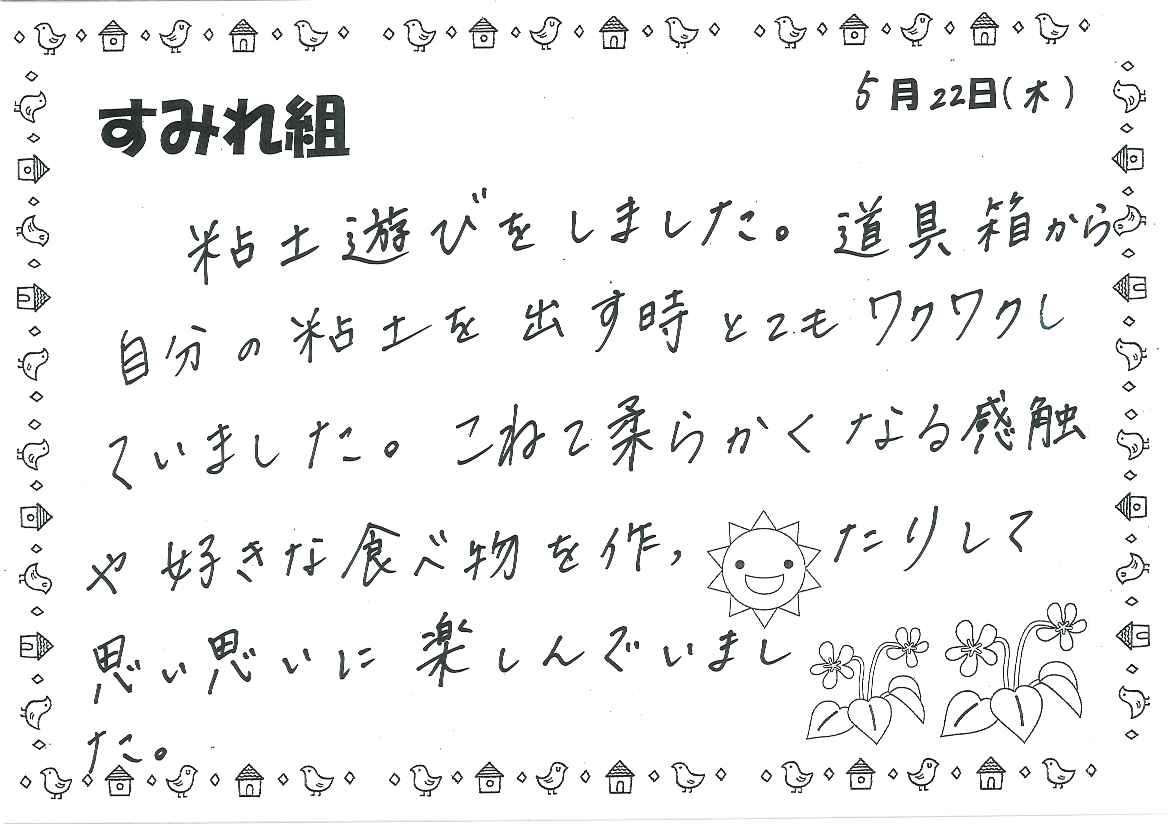 すみれ組
5月22日(木)
粘土遊びをしました。道具箱から
自分の粘土を出す時とてもワクワクし
ていました。こねて柔らかくなる感触
や好きな食べ物を作ったりして
思い思いに楽しんでいまし
た。